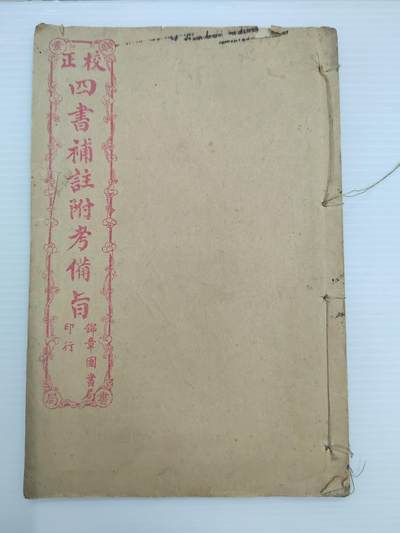 校正
四書補註附考備旨
錦章圖書局
印行